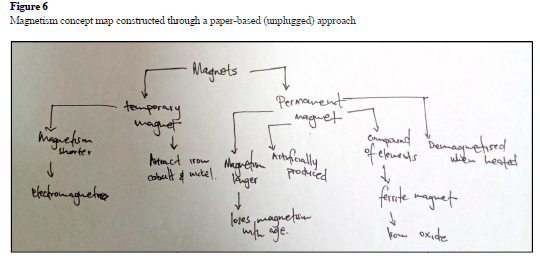 Figure 6
Magnetism concept map constructed through a paper-based (unplugged) approach
Magnets
temporary
magnet
Permanent
magnet
Magnetism
shorter
electromagnets
Attract iron
cobalt & nickel.
Magnetism
longer
loses magnetism
with age.
Artificially
produced
compound
of elements
ferrite magnet
Iron oxide
Demagnetised
when heated